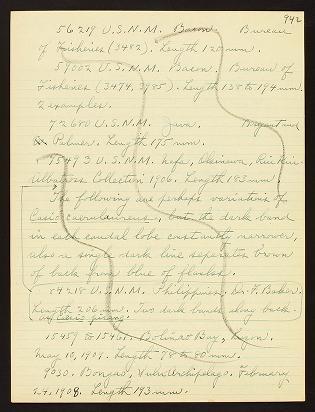 942
56219 U.S.N.M. Bacon. Bureau
of Fisheries (3482). Length 120 mm.
59002 U.S.N.M. Bacon. Bureau of
Fisheries (3474, 3985). Length 138 to 194 mm.
2 examples.
72680 U.S.N.M. Java. Bryant and
Palmer. Length 175 mm.
75493 U.S.N.M. Okinawa,
Albatross Collection 1906. Length 183 mm.
"The following are perhaps variations of
Casio caerulaureus, but the dark band
in each caudal lobe constantly narrower,
also a single dark line separates brown
of back from blue of flanks.
84218 U.S.N.M. Philippines. Dr. F. Baker.
Length 206 mm. Two dark bands along back.
15459 to 15461. Bolinao Bay, Luzon.
May 10, 1909. Length 78 to 80 mm.
9030. Bongao, Sulu Archipelago. February
24, 1908. Length 193 mm.